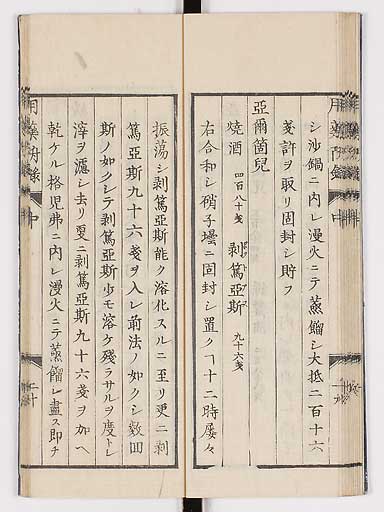 シ沙鍋ニ内レ漫火ニテ蒸餾シ大抵二百十六
戔許ヲ取リ固封シ貯フ
亞爾箇兒
燒酒 四百八十戔 剥篤亞斯 九十六戔
右合和シ硝子壜ニ固封シ置クヿ十二時屢々
用藥附録 中
十九
振蕩シ剥篤亞斯能ク溶化スルニ至リ更ニ剥
篤亞斯九十六戔ヲ入レ前法ノ如クシ數回
斯ノ如クシテ剥篤亞斯少モ溶ケ殘ラサルヲ度トレ
滓ヲ濾シ去リ更ニ剥篤亞斯九十六戔ヲ加ヘ
乾ケル格児弗ニ内レ漫火ニテ蒸餾レ盡ス即チ
用藥附録 中
二十